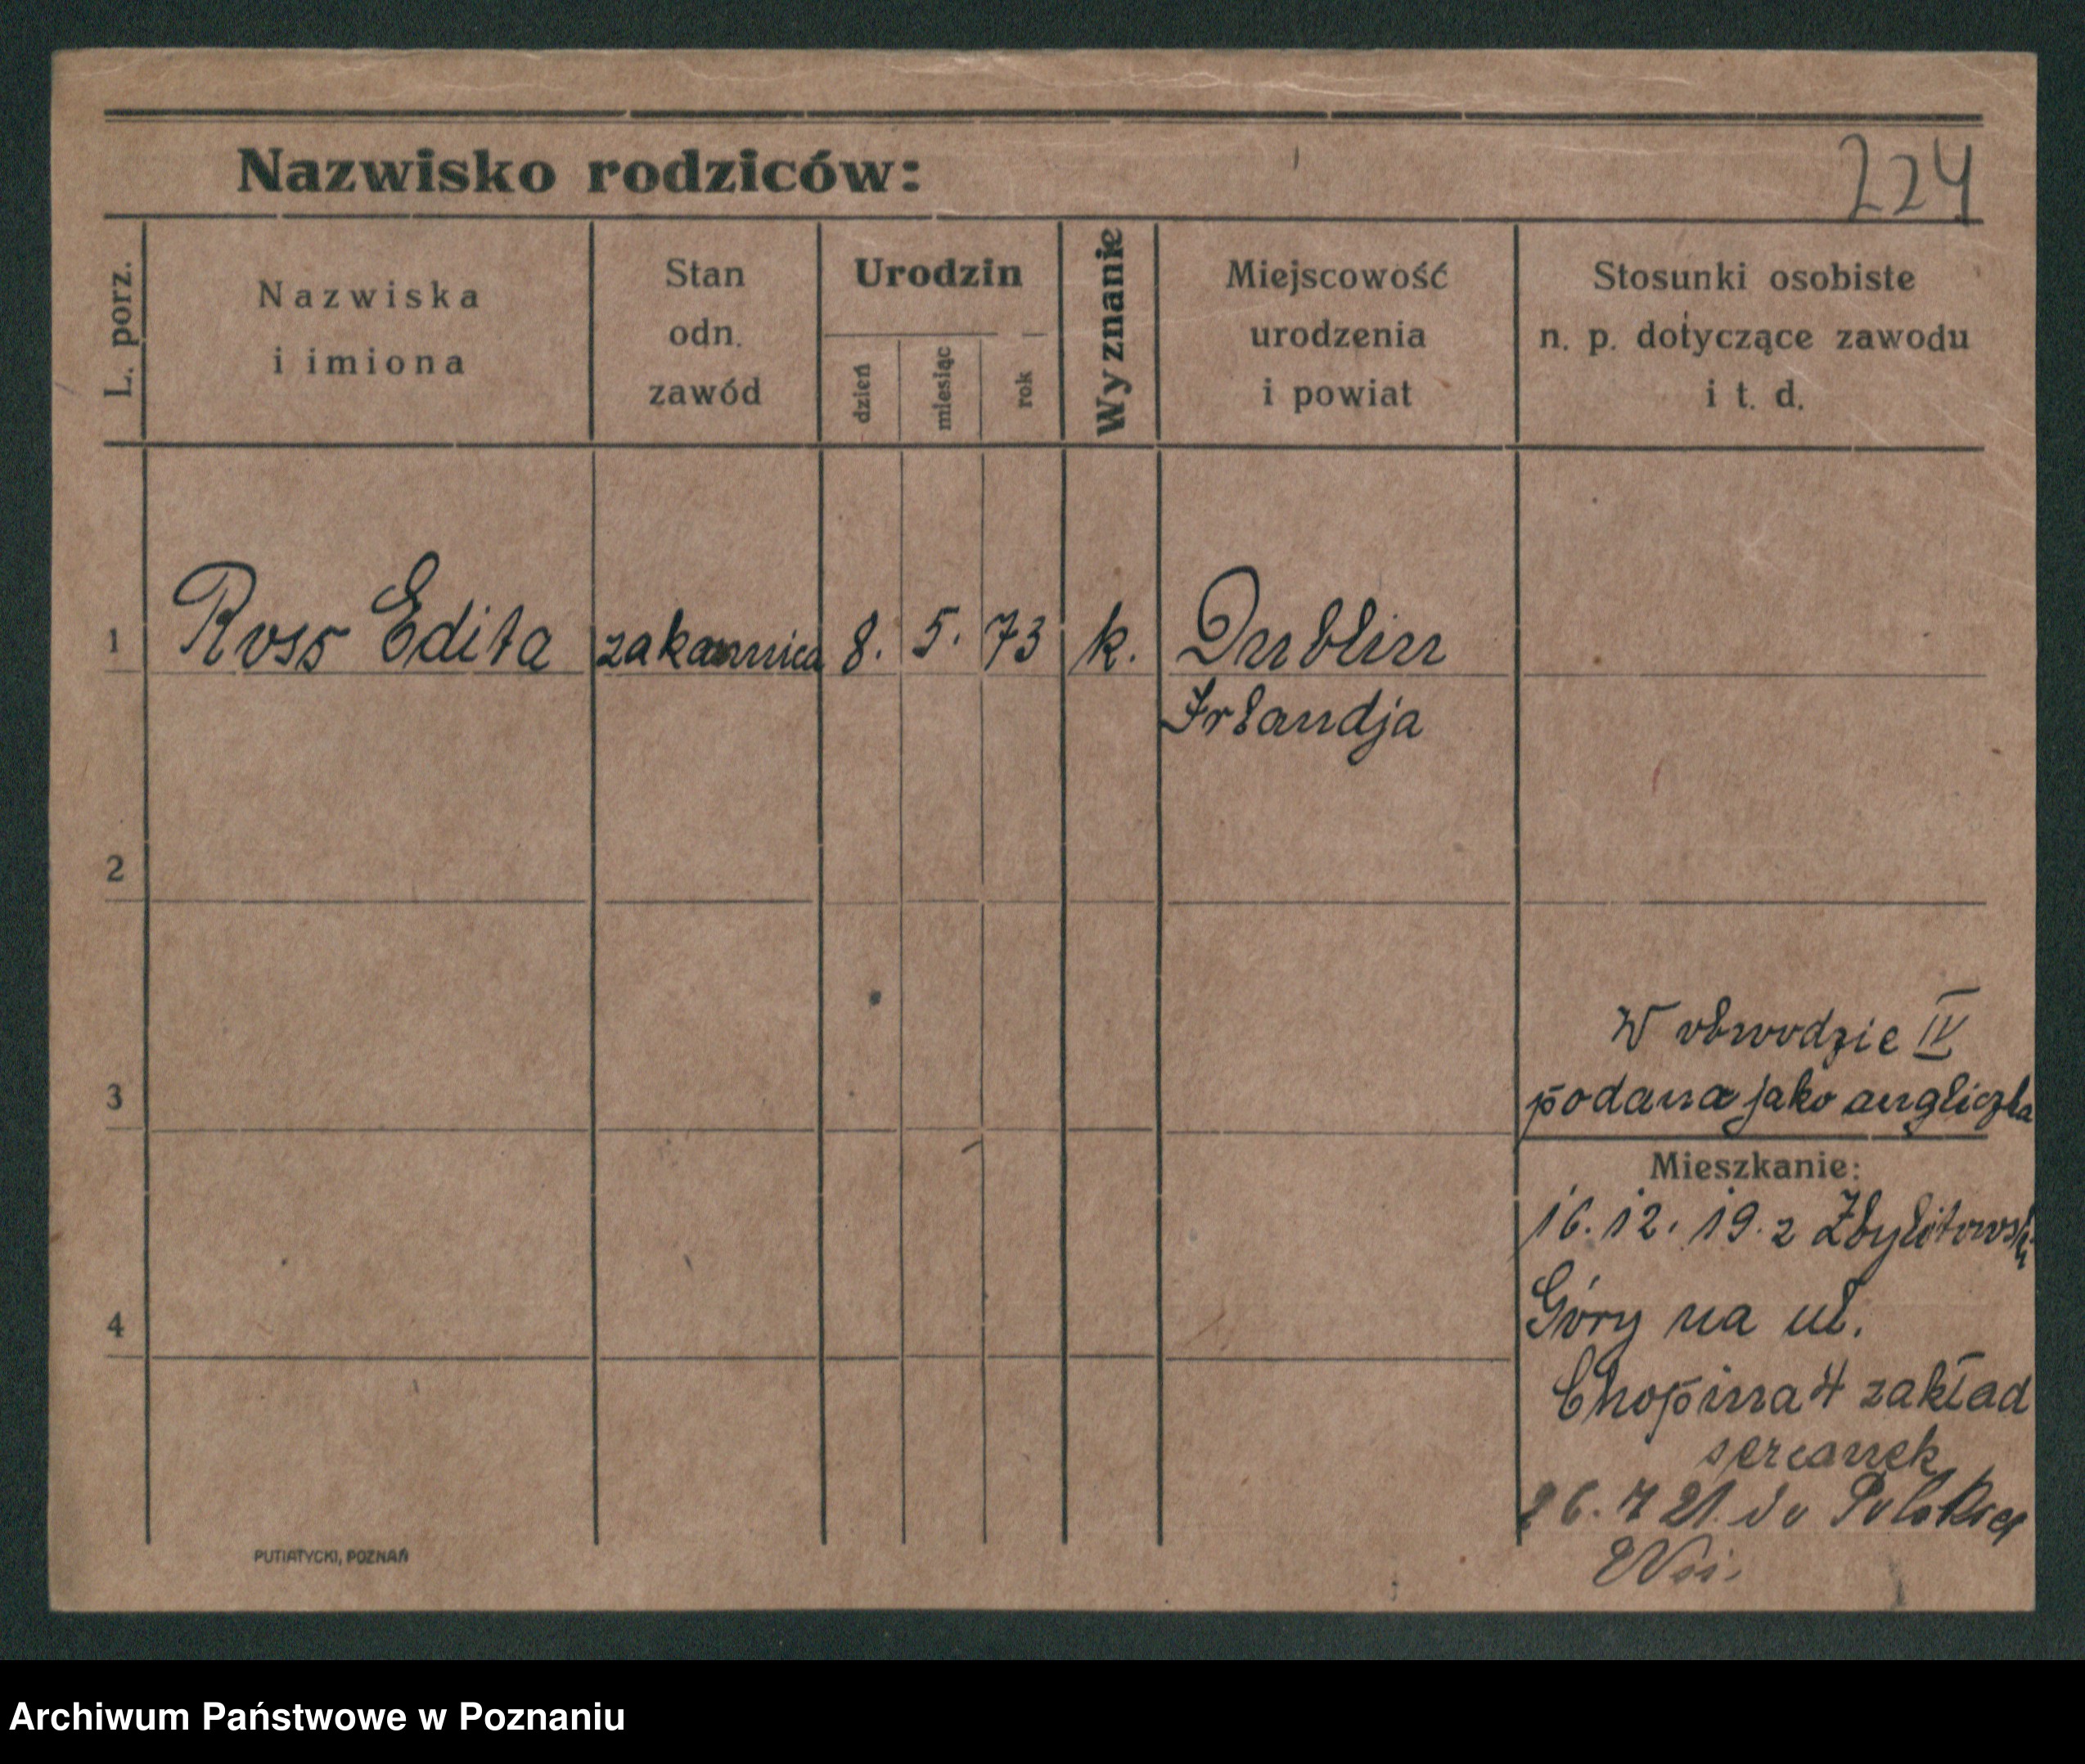 Nazwisko rodziców:
224
L. porz.
Nazwiska
i imiona
Stan
odn.
zawód
Urodzin
dzień
miesiąc
rok
Wyznanie
Miejscowość
urodzenia
i powiat
Stosunki osobiste
n. p. dotyczące zawodu
i t. d.
1 Ross Edita zakonnica 8. 5. 73 k. Dublin
Irlandja
2
3
W obwodzie IV
podana jako angliczka
Mieszkanie:
16. 12. 19. z Zbylitowskiej
Góry na ul.
4
Chopina 4 zakład
sercanek
26. 7 21. do Polskiej
Wsi.
PUTIATYCKI, POZNAŃ
Archiwum Państwowe w Poznaniu